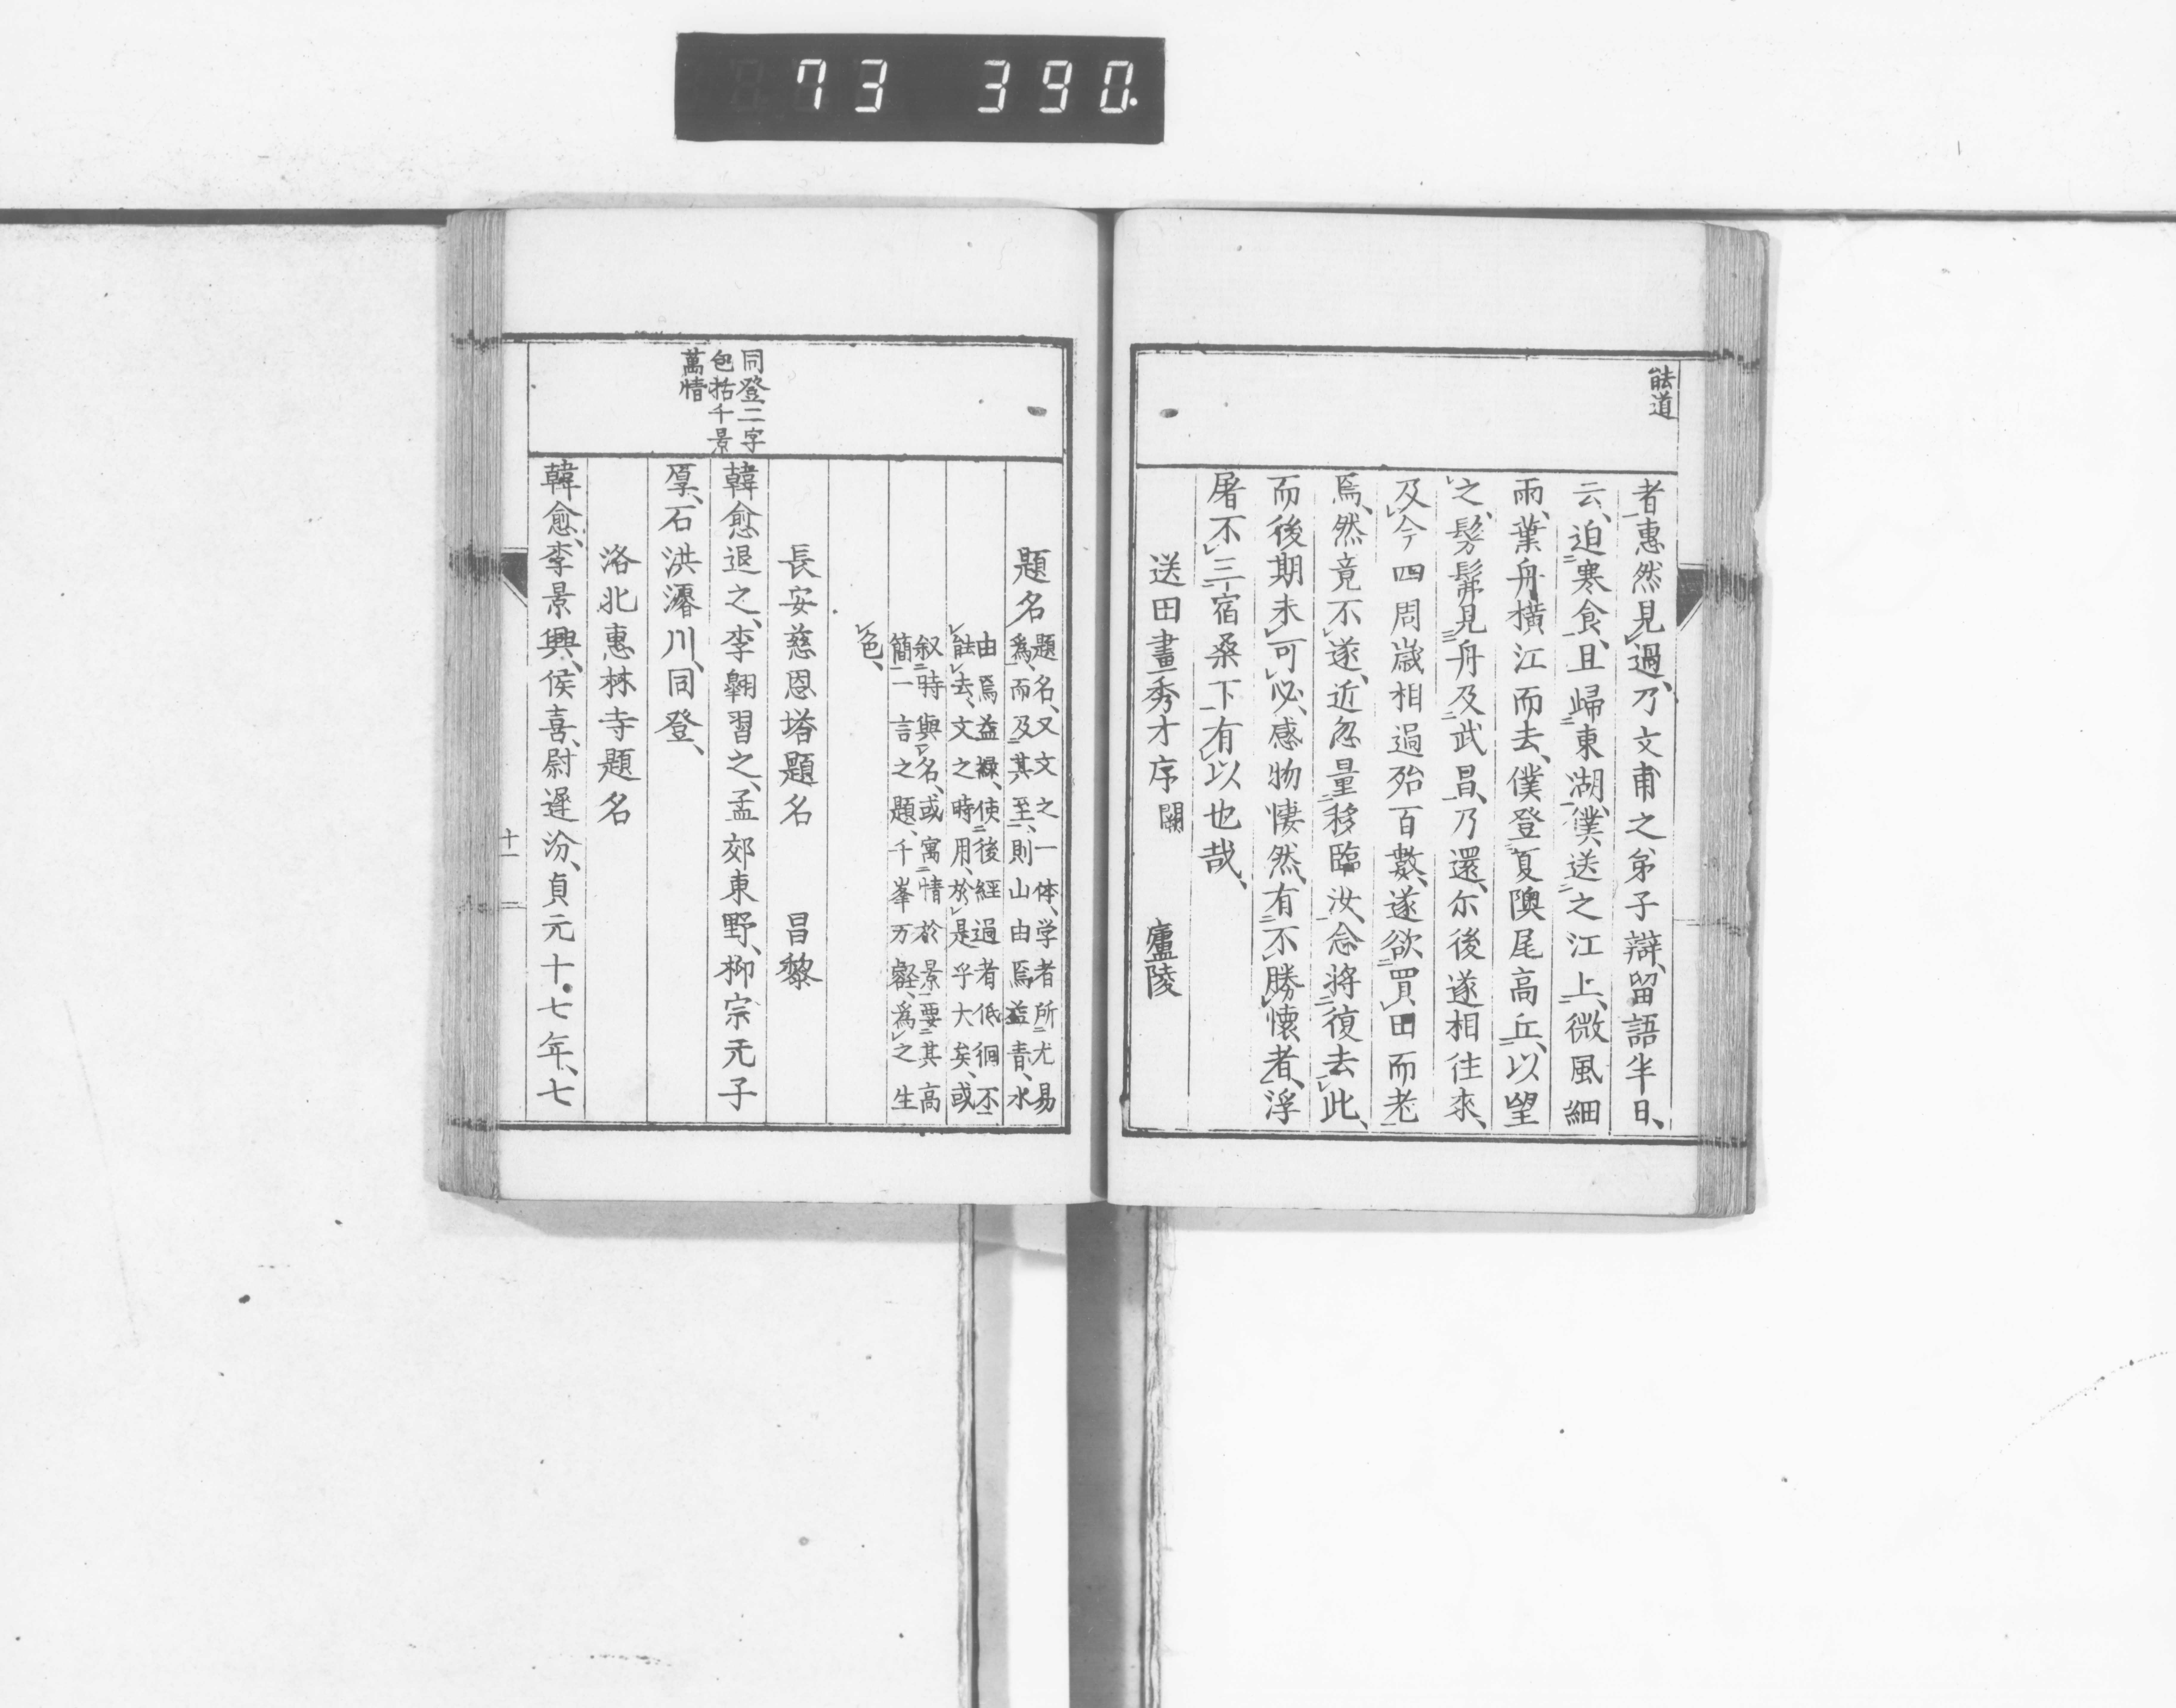 73 390.
能道
者、惠然見過、乃文甫之弟子辯、留語半日、
云、迫寒食、且歸東湖、僕送之江上、微風細
雨、葉舟横江而去、僕登夏隩尾高丘、以望
之、髣髴見舟及武昌、乃還、尓後遂相往來、
及今四周歳相過殆百數、遂欲買田而老
焉、然竟不遂、近忽量移臨汝、念將復去此、
而後期未可必、感物悽然、有不勝懷者、浮
屠不三宿桑下有以也哉、
送田畫秀才序 闕 廬陵
同登二字
包括千景
萬情
題名
題名、又文之一体、学者所尤易
爲、而及其至、則山由焉益青、水
由焉益緑、使後経過者低徊不
能去、文之時用、於是乎大矣、或
叙時與名、或寓情於景、要其高
簡一言之題、千峯万壑、爲之生
色、
長安慈恩塔題名 昌黎
韓愈退之、李翺習之、孟郊東野、柳宗元子
厚、石洪濬川、同登、
洛北惠林寺題名
韓愈、李景興、侯喜、尉遲汾、貞元十七年、七
十一